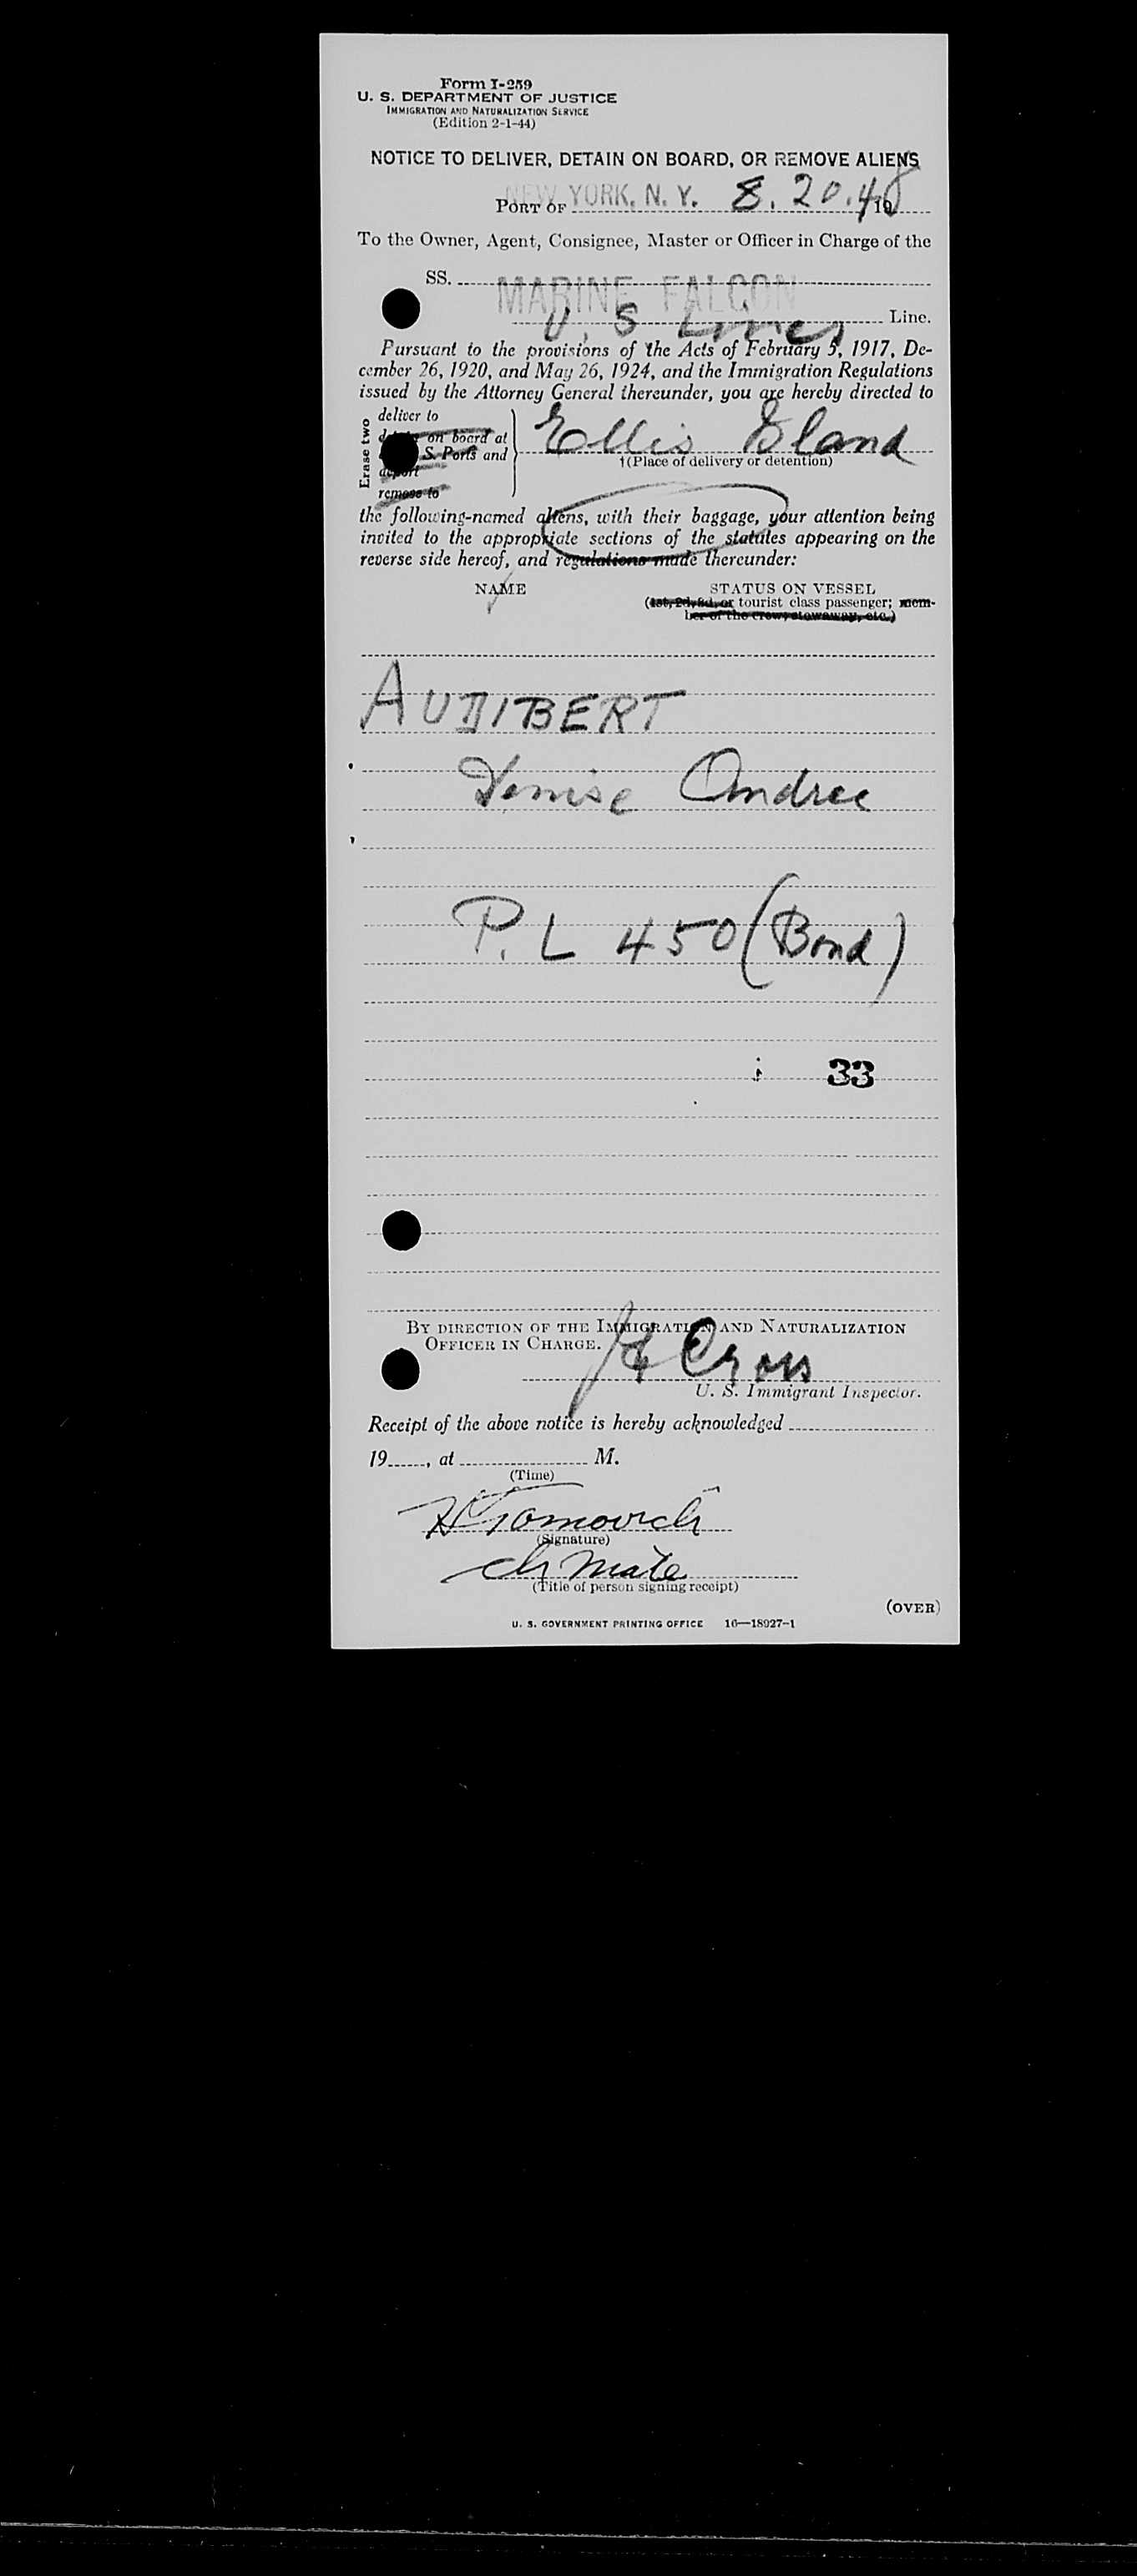 Form I-259
U. S. DEPARTMENT OF JUSTICE
IMMIGRATION AND NATURALIZATION SERVICE
(Edition 2-1-44)
NOTICE TO DELIVER, DETAIN ON BOARD, OR REMOVE ALIENS
PORT OF NEW YORK, N. Y. 8. 20. 48 19
To the Owner, Agent, Consignee, Master or Officer in Charge of the
SS. MARINE FALCON
U. S Lines Line.
Pursuant to the provisions of the Acts of February 5, 1917, De-
cember 26, 1920, and May 26, 1924, and the Immigration Regulations
issued by the Attorney General thereunder, you are hereby directed to
Erase two
deliver to
on board at
S. Ports and
deport
remove to
Ellis Island
†(Place of delivery or detention)
the following-named aliens, with their baggage, your attention being
invited to the appropriate sections of the statutes appearing on the
reverse side hereof, and regulations made thereunder:
NAME STATUS ON VESSEL
(1st, 2d, 3d, or tourist class passenger; mem-
ber of the crew, stowaway, etc.)
AUDIBERT
Denise Andree
P. L 450 (Bond)
33
BY DIRECTION OF THE IMMIGRATION AND NATURALIZATION
OFFICER IN CHARGE.
Cross
U. S. Immigrant Inspector.
Receipt of the above notice is hereby acknowledged
19, at M.
(Time)
(Signature)
ch mate
(Title of person signing receipt)
(OVER)
U. S. GOVERNMENT PRINTING OFFICE 16—18927-1